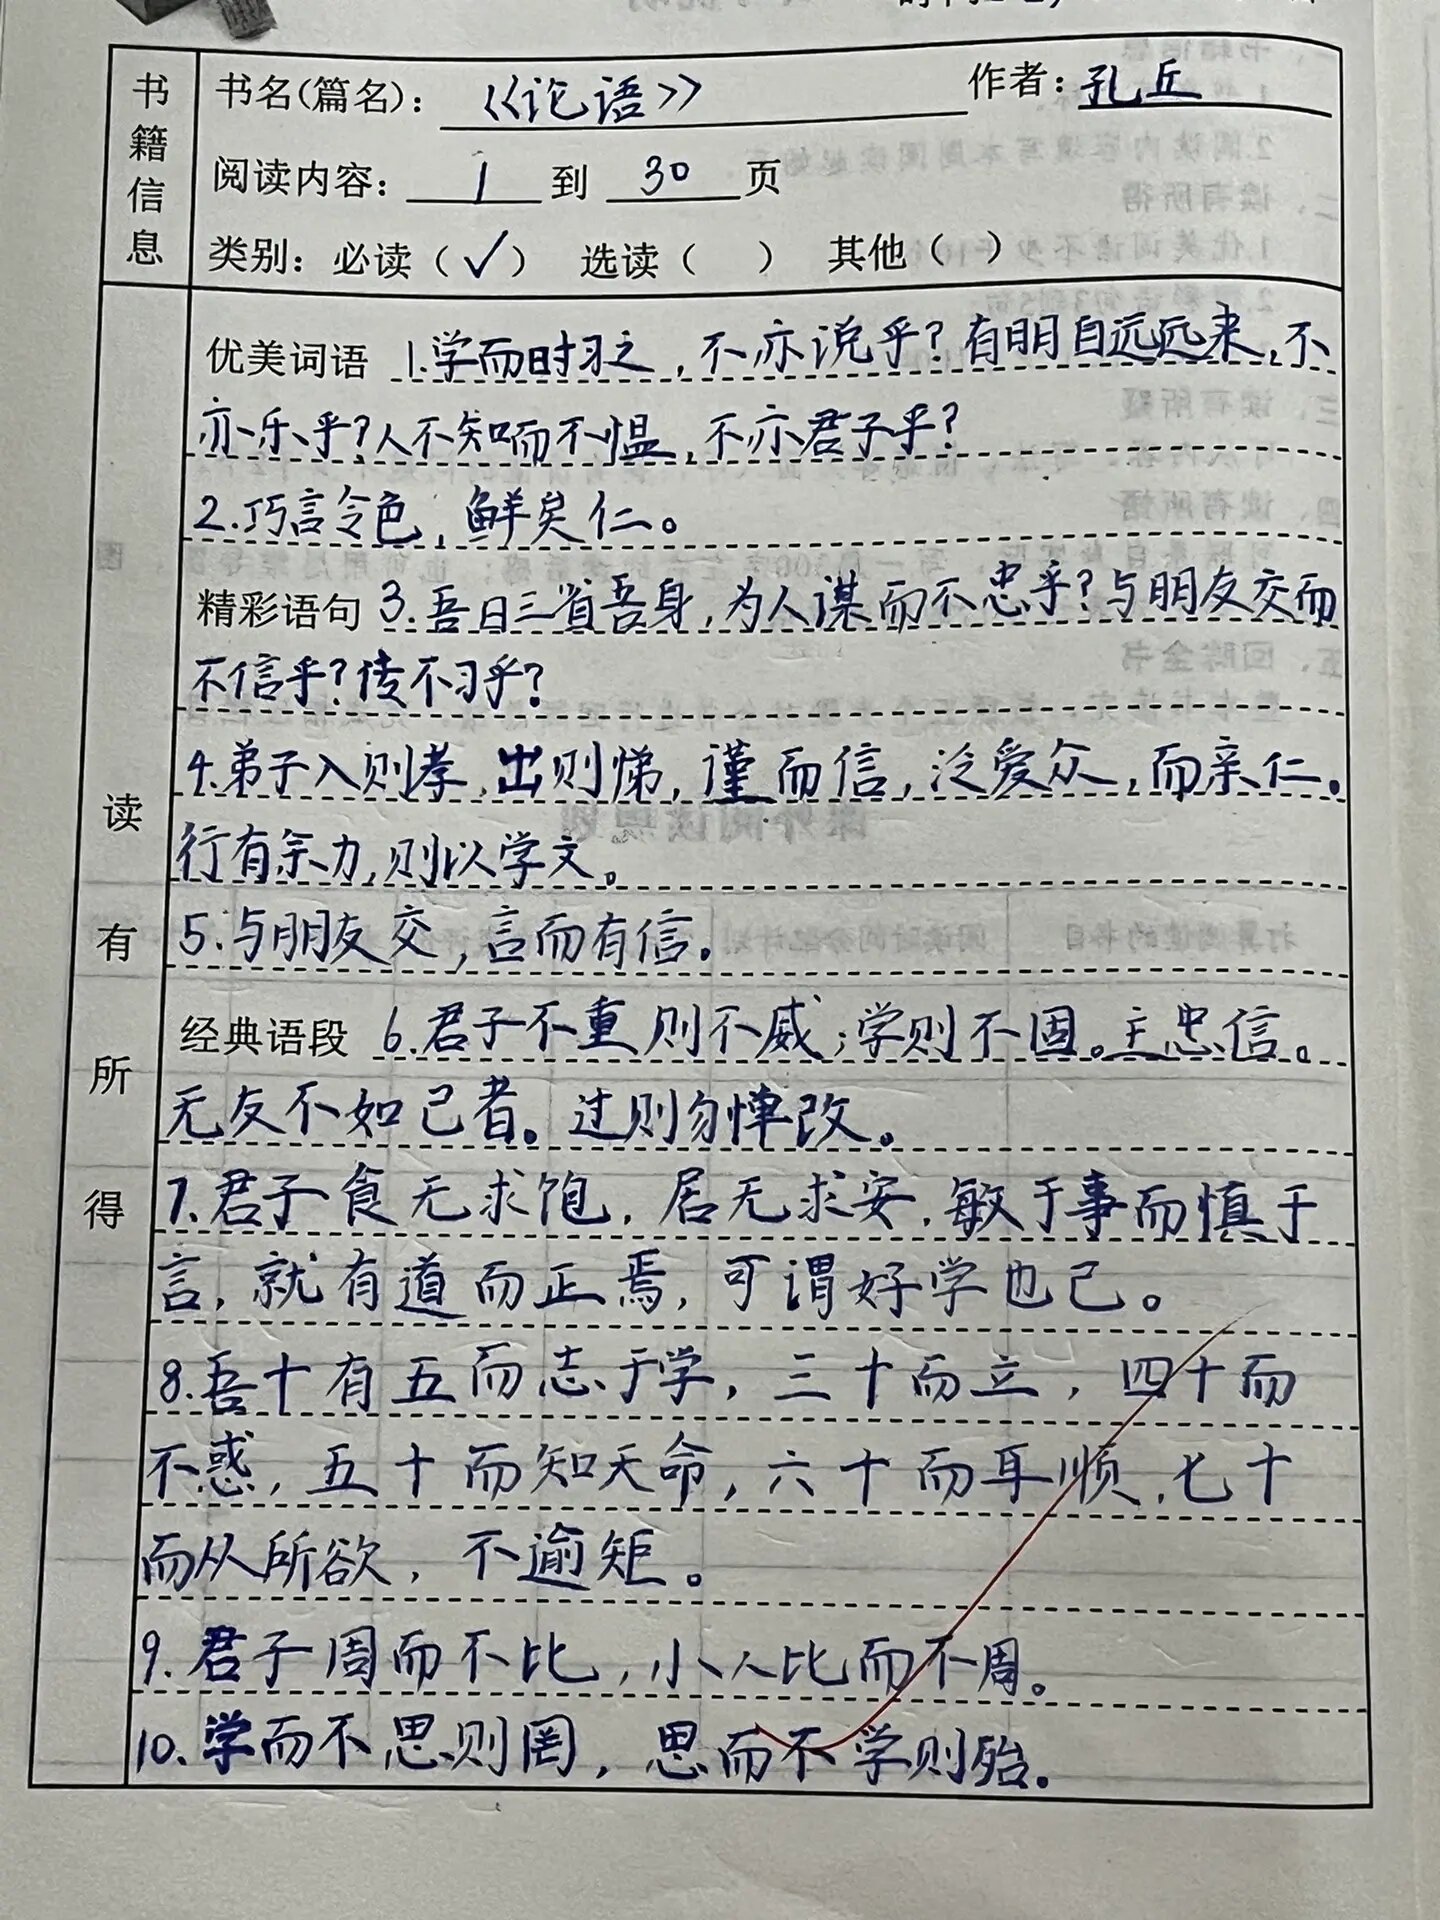 书籍信息
书名(篇名)：《论语》 作者：孔丘
阅读内容：1 到 30 页
类别：必读（✓） 选读（ ） 其他（ ）
读有所得
优美词语 1.学而时习之，不亦说乎？有朋自远远来，不
亦乐乎？人不知而不愠，不亦君子乎？
2.巧言令色，鲜矣仁。
精彩语句 3.吾日三省吾身，为人谋而不忠乎？与朋友交而
不信乎？传不习乎？
4.弟子入则孝，出则悌，谨而信，泛爱众，而亲仁。
行有余力，则以学文。
5.与朋友交，言而有信。
经典语段 6.君子不重则不威；学则不固。主忠信。
无友不如己者。过则勿惮改。
7.君子食无求饱，居无求安，敏于事而慎于
言，就有道而正焉，可谓好学也已。
8.吾十有五而志于学，三十而立，四十而
不惑，五十而知天命，六十而耳顺，七十
而从所欲，不逾矩。
9.君子周而不比，小人比而不周。
10.学而不思则罔，思而不学则殆。